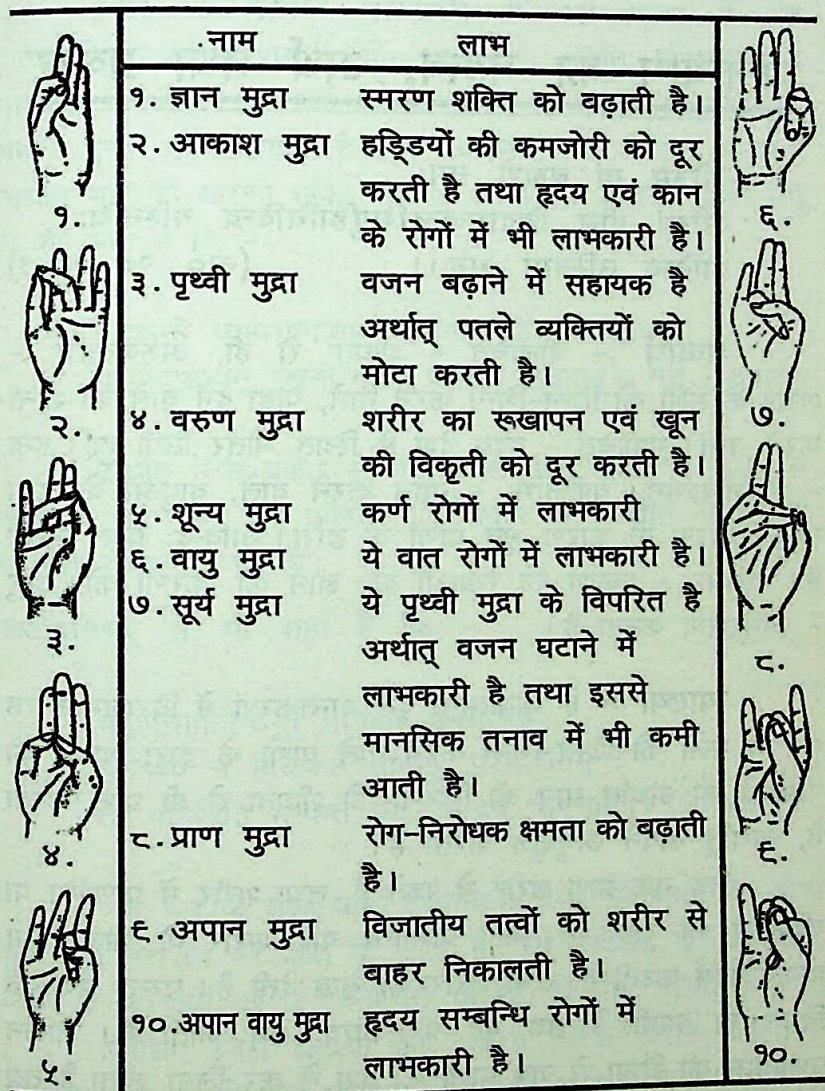 नाम लाभ
१. ज्ञान मुद्रा स्मरण शक्ति को वढ़ाती है।
२. आकाश मुद्रा हड्डियों की कमजोरी को दूर
करती है तथा हृदय एवं कान
के रोगों में भी लाभकारी है।
३. पृथ्वी मुद्रा वजन बढ़ाने में सहायक है
अर्थात् पतले व्यक्तियों को
मोटा करती है।
४. वरुण मुद्रा शरीर का रूखापन एवं खून
की विकृती को दूर करती है।
५. शून्य मुद्रा कर्ण रोगों में लाभकारी
६. वायु मुद्रा ये वात रोगों में लाभकारी है।
७. सूर्य मुद्रा ये पृथ्वी मुद्रा के विपरित है
अर्थात् वजन घटाने में
लाभकारी है तथा इससे
मानसिक तनाव में भी कमी
आती है।
८. प्राण मुद्रा रोग-निरोधक क्षमता को वढ़ाती
है।
९. अपान मुद्रा विजातीय तत्वों को शरीर से
बाहर निकालती है।
१०. अपान वायु मुद्रा हृदय सम्बन्धि रोगों में
लाभकारी है।
१.
२.
३.
४.
५.
६.
७.
८.
९.
१०.